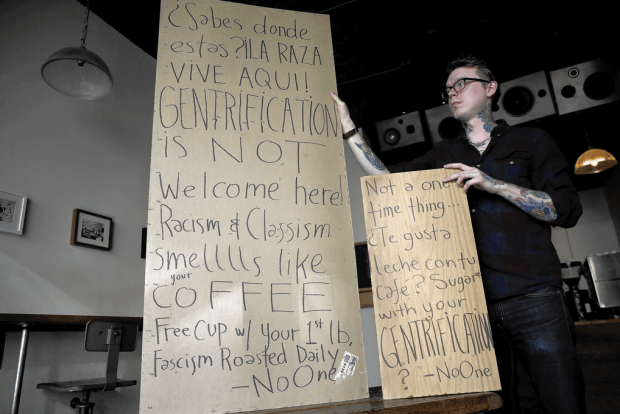 ¿Sabes donde
estas?¡LA RAZA
VIVE AQUI!
GENTRIFICATION
is NOT
Welcome here!
Racism & Classism
smelllls like
your
COFFEE
Free Cup w/ your 1st lb.
Fascism Roasted Daily
-NoOne
Not a one
time thing...
¿Te gusta
leche con tu
Café? Sugar
with your
GENTRIFICATION
? -NoOne